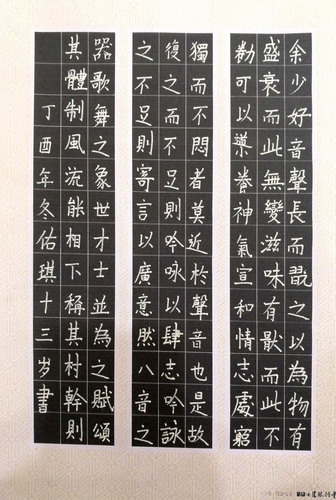 余少好音聲長而翫之以為物有
盛衰而此無變滋味有猒而此不
勌可以導養神氣宣和情志處窮
獨而不悶者莫近於聲音也是故
復之而不足則吟咏以肆志吟詠
之不足則寄言以廣意然八音之
器歌舞之象世才士並為之賦頌
其體制風流能相下稱其村幹則
丁酉年冬佑琪十三岁書